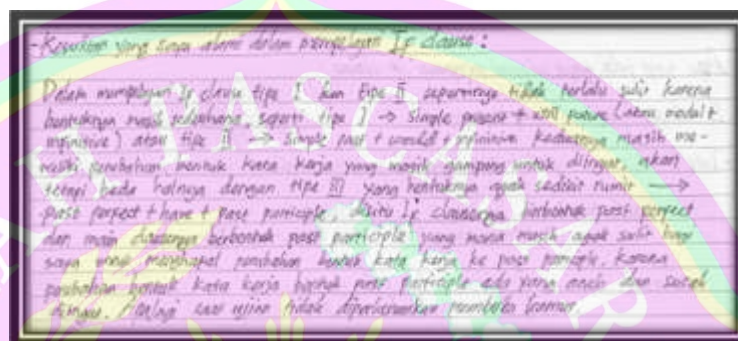 - Kesulitan yang saya alami dalam mempelajari If clause :
Dalam mempelajari If clause tipe I dan tipe II sepertinya tidak terlalu sulit karena
bentuknya masih sederhana, seperti tipe I → simple present + will future (atau modal +
infinitive) atau tipe II → simple past + would + infinitive. Keduanya masih me-
miliki perubahan bentuk kata kerja yang masih gampang untuk diingat, akan
tetapi beda halnya dengan tipe III yang bentuknya agak sedikit rumit →
past perfect + have + past participle, disitu If clausenya berbentuk past perfect
dan main clausenya berbentuk past participle yang mana masih agak sulit bagi
saya untuk menghapal perubahan bentuk kata kerja ke past participle. Karena
perubahan bentuk kata kerja past participle ada yang aneh dan susah
diingat. Apalagi saat ujian tidak diperkenankan membuka kamus.
AH PASCASAR